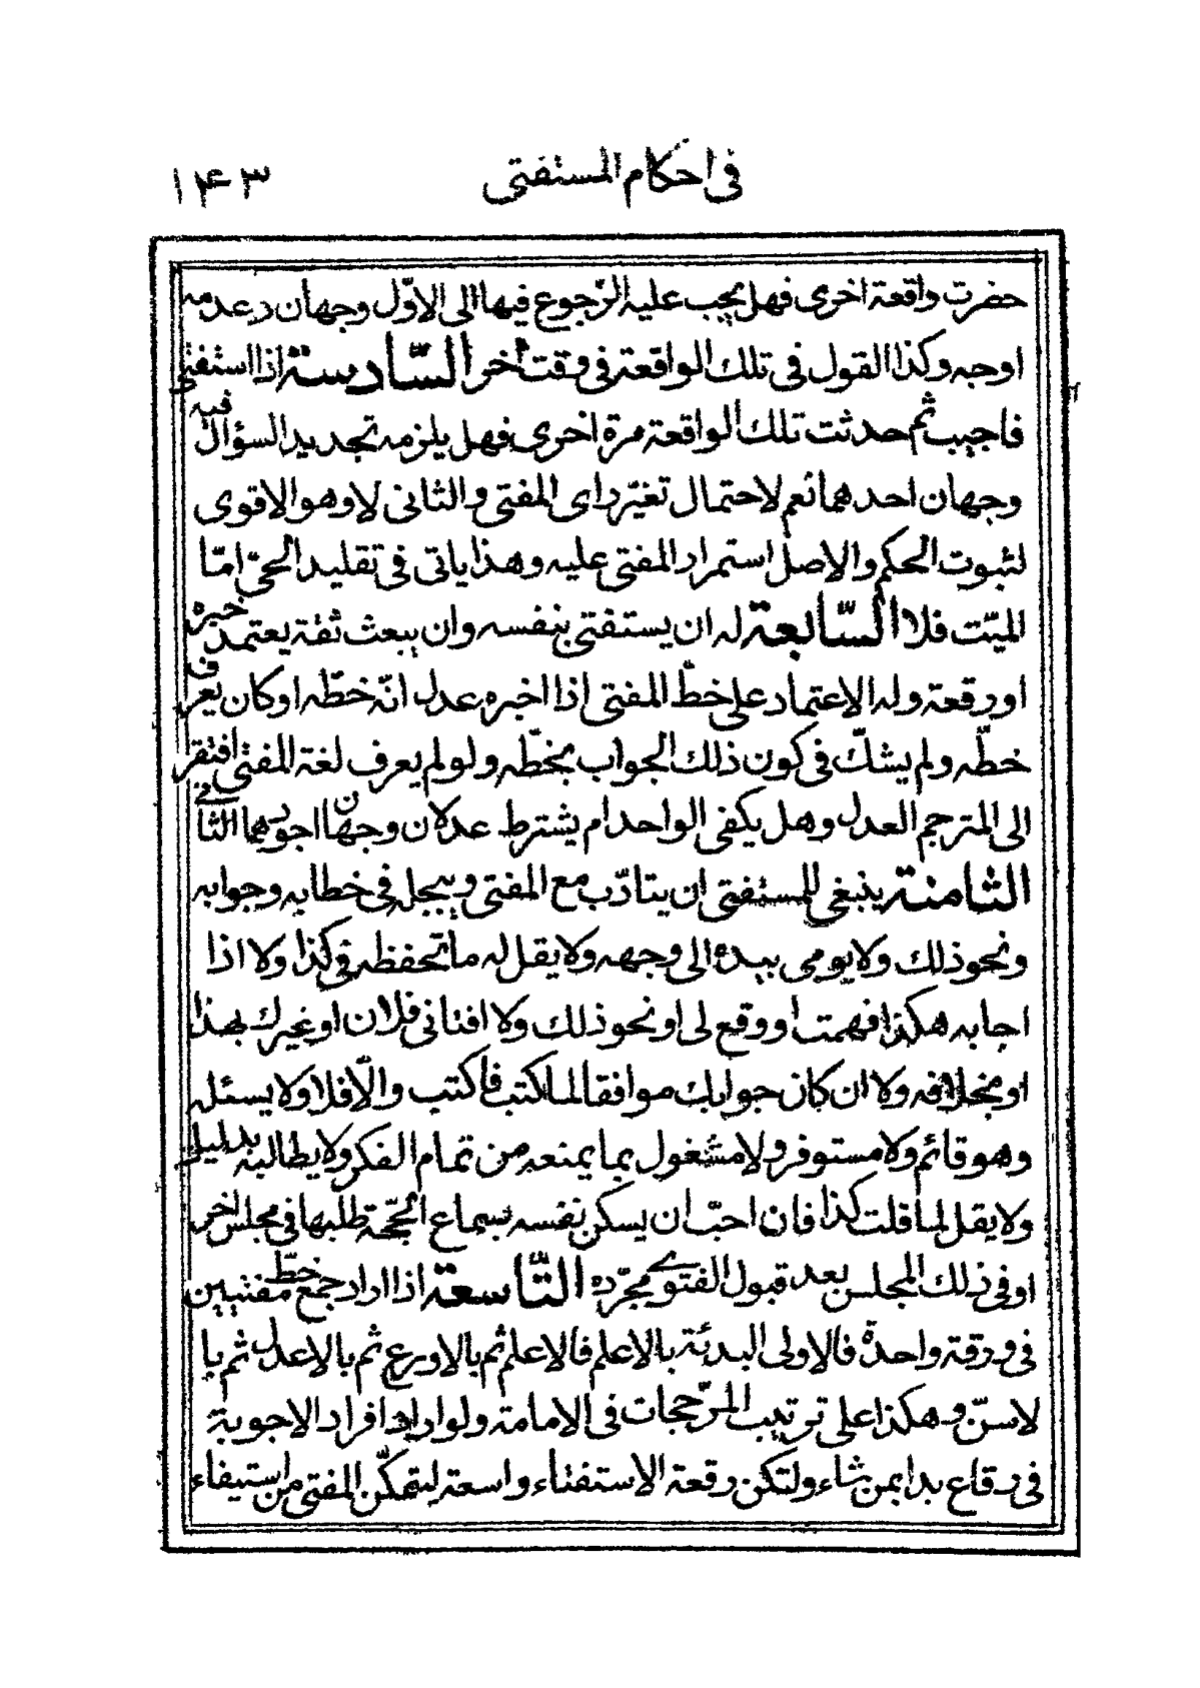 في احكام المستفتي ١۴٣
حضرت واقعة اخرى فهل يجب عليه الرّجوع فيها الى الاوّل وجهان وعدمه
اوجه وكذا القول في تلك الواقعة في وقت آخر السّادسة اذا استفتى
فاجيب ثم حدثت تلك الواقعة مرة اخرى فهل يلزمه تجديد السؤال فيه
وجهان احدهما نعم لاحتمال تغيّر راى المفتي والثاني لا وهو الاقوى
لثبوت الحكم والاصل استمرار المفتي عليه وهذا ياتي في تقليد الحيّ امّا
الميّت فلا السّابعة له ان يستفتي بنفسه وان يبعث ثقة يعتمد خبره
او رقعة وله الاعتماد على خطّ المفتي اذا اخبره عدل انّه خطّه او كان يعرف
خطّه ولم يشكّ في كون ذلك الجواب بخطّه ولو لم يعرف لغة المفتي افتقر
الى المترجم العدل وهل يكفي الواحد ام يشترط عدلان وجهان اجودهما الثاني
الثامنة ينبغي للمستفتي ان يتادّب مع المفتي ويبجله في خطابه وجوابه
ونحو ذلك ولا يومي بيده الى وجهه ولا يقل له ما تحفظه في كذا ولا اذا
اجابه هكذا فهمت او وقع لي او نحو ذلك ولا افتاني فلان او غيرك بهذا
او بخلافه ولا ان كان جوابك موافقا لما كتب فاكتب والّا فلا ولا يسئله
وهو قائم ولا مستوفز ولا مشغول بما يمنعه من تمام الفكر ولا يطالبه بدليل
ولا يقل لما قلت كذا فان احبّ ان يسكن نفسه بسماع الحجّة طلبها في مجلس اخر
او في ذلك المجلس بعد قبول الفتوى مجرّده التّاسعة اذا اراد جمع خطّ مفتيين
في ورقة واحدة فالاولى البدئة بالاعلم فالاعلم ثم بالاورع ثم بالاعدل ثم با
لاسنّ وهكذا على ترتيب المرّجحات في الامامة ولو اراد افراد الاجوبة
في رقاع بدا بمن شاء ولتكن رقعة الاستفتاء واسعة ليتمكّن المفتي من استيفاء